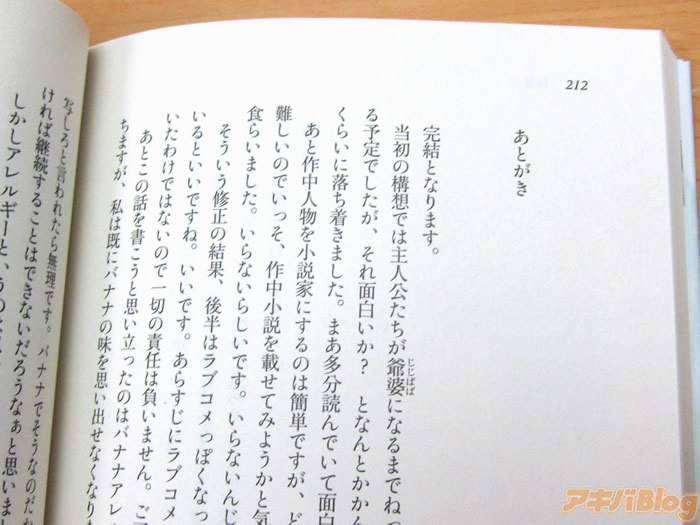 212
あとがき
完結となります。
当初の構想では主人公たちが爺婆になるまでねっ
じじばば
る予定でしたが、それ面白いか? となんとかかん
くらいに落ち着きました。まあ多分読んでいて面白
あと作中人物を小説家にするのは簡単ですが、ど
難しいのでいっそ、作中小説を載せてみようかと気
食らいました。いらないらしいです。いらないんじ
そういう修正の結果、後半はラブコメっぽくなっ
いるといいですね。いいです。あらすじにラブコメ
いたわけではないので一切の責任は負いません。ご
あとこの話を書こうと思い立ったのはバナナアレル
ちますが、私は既にバナナの味を思い出せなくなりま
写しろと言われたら無理です。バナナでそうなのだか
ければ継続することはできないだろうなぁと思いま
しかしアレルギーと、うの
アキバBlog